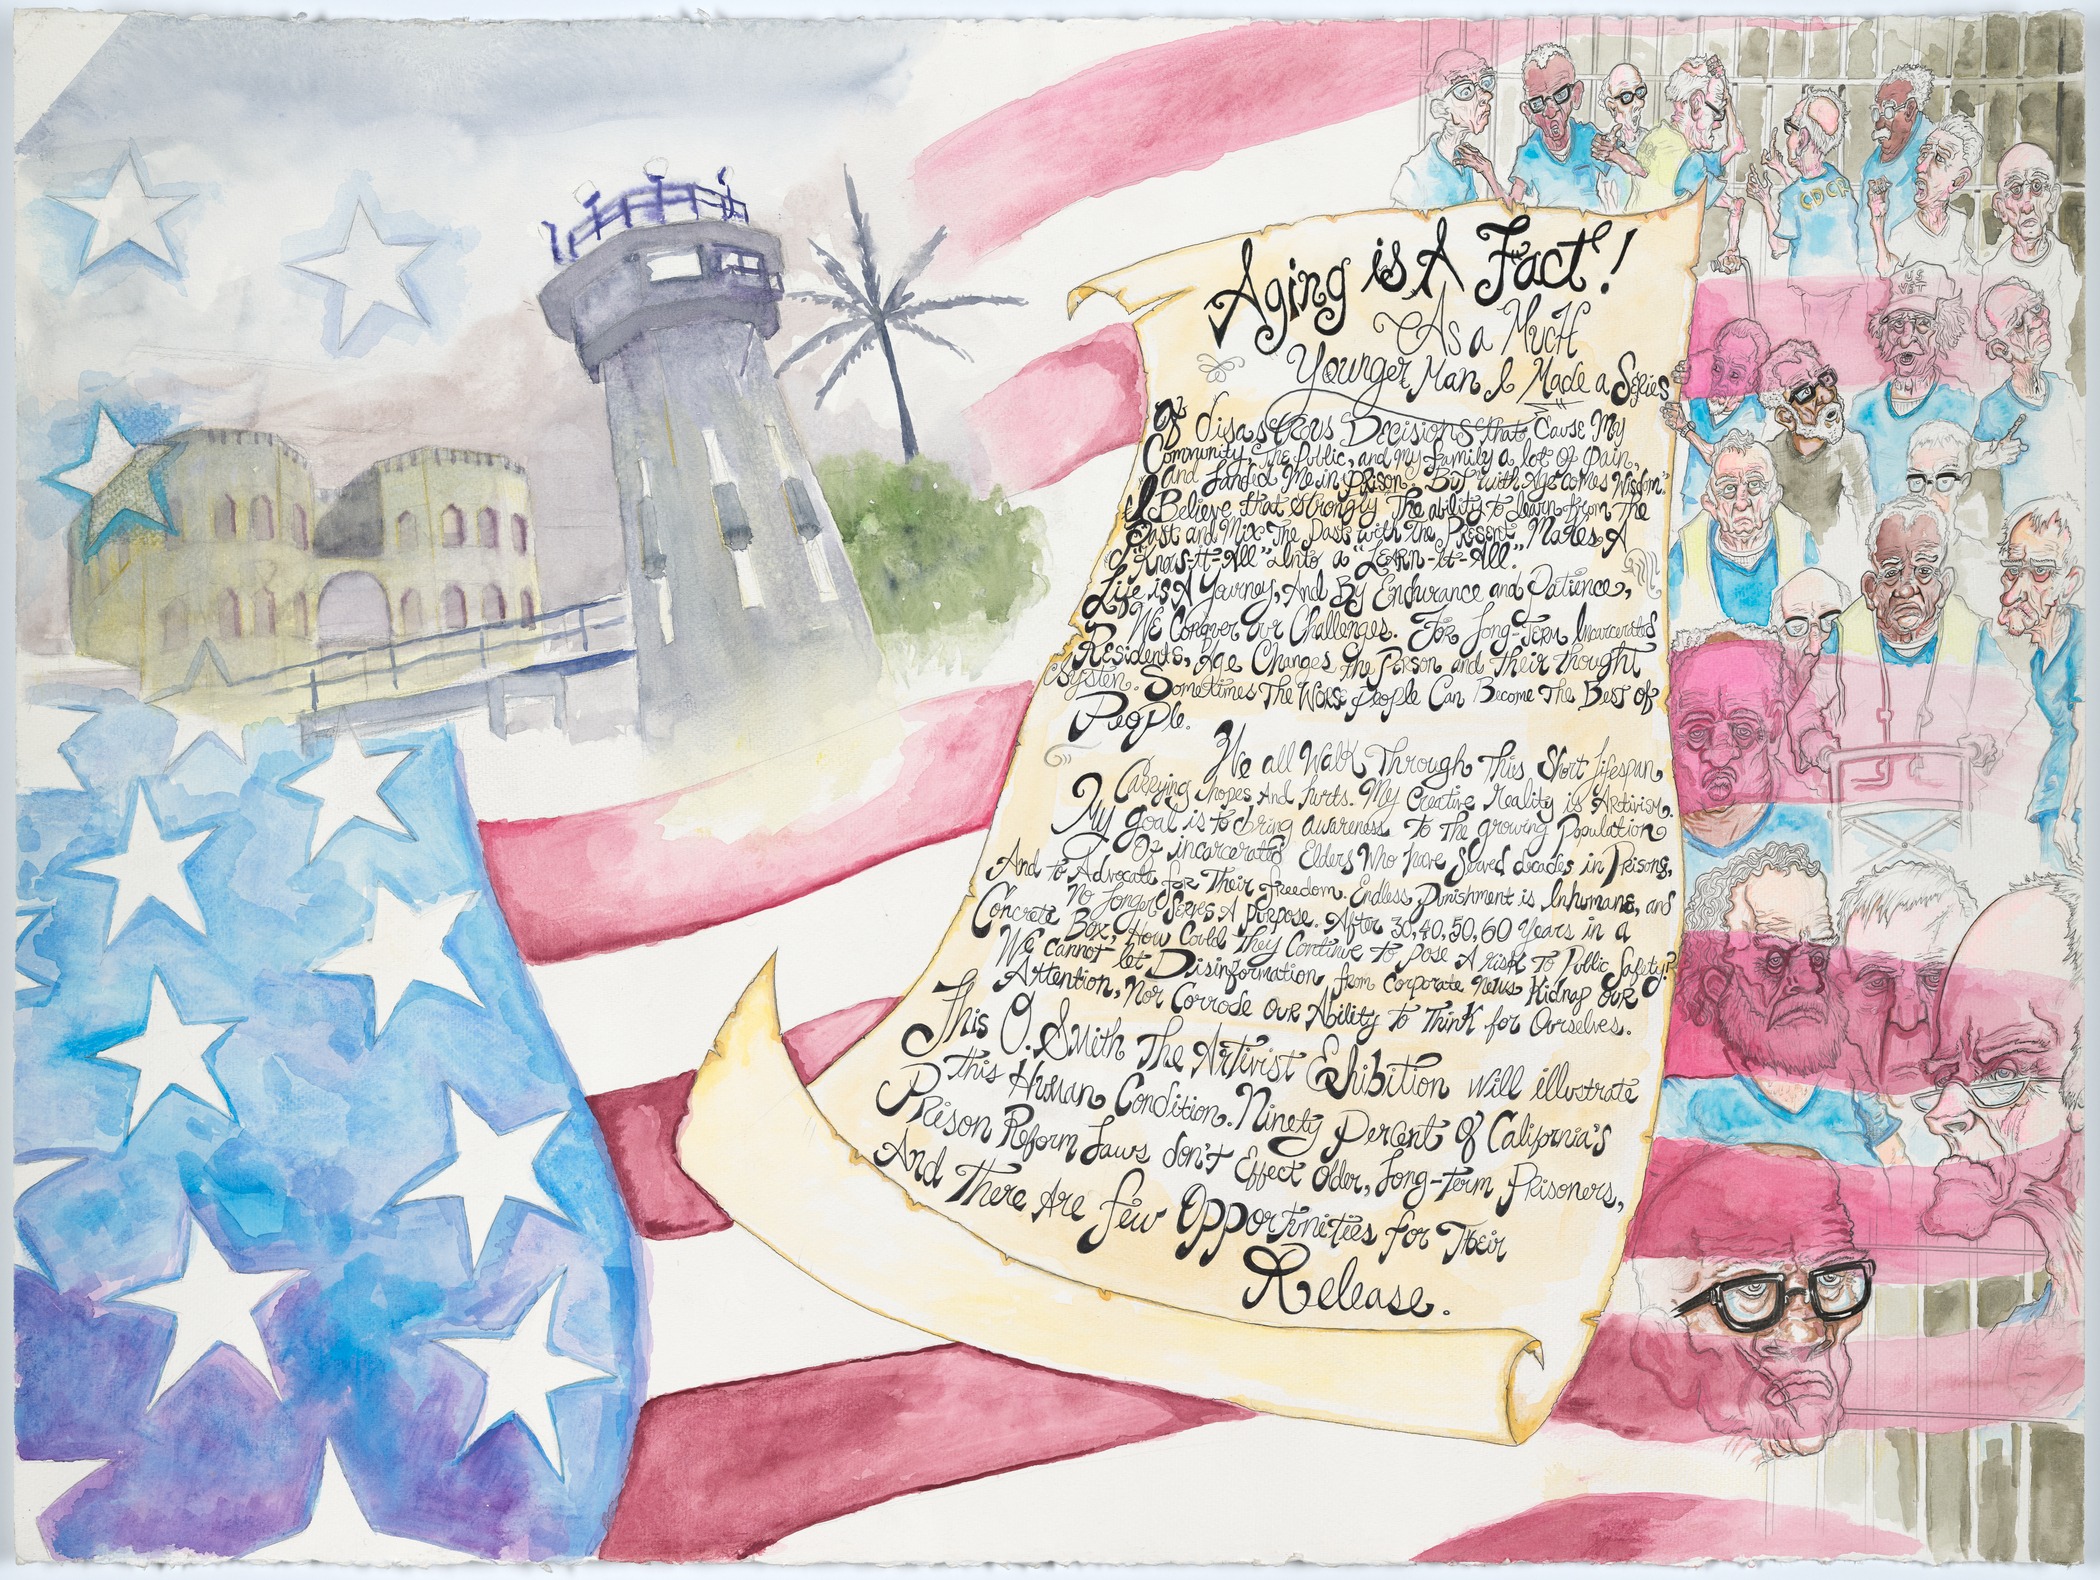 Aging is A Fact!
As a Much
Younger Man I Made a Series
of disastrous Decisions that Cause My
Community, The Public, and my family a lot of Pain,
and Landed Me in Prison. But "with Age comes Wisdom."
I Believe that Strongly The ability to learn from The
Past and Mix The Past with The Present, Makes A
"Know-it-All" into a "LEARN-it-All."
Life is A Journey, And By Endurance and Patience,
We Conquer our Challenges. For Long-Term Incarcerated
Residents, Age Changes The Person and Their thought
System. Sometimes The Worse People Can Become The Best of
People.
We all Walk Through This Short lifespan
Carrying hopes And hurts. My Creative reality is Artivism.
My goal is to bring awareness To The growing Population
Of incarcerated Elders Who have Served decades in Prisons,
And to Advocate for Their freedom. Endless Punishment is Inhumane, and
No longer Serves A purpose. After 30, 40, 50, 60 Years in a
Concrete Box, How Could They Continue to Pose A risk To Public Safety?
We Cannot let Disinformation from corporate news Kidnap our
Attention, Nor Corrode our Ability To Think for Ourselves.
This O. Smith The Artivist Exhibition will illustrate
this Human Condition. Ninety Percent of California's
Prison Reform Laws don't Effect Older, Long-Term Prisoners,
And There Are few Opportunities for Their
Release.
CDCR
US
VET